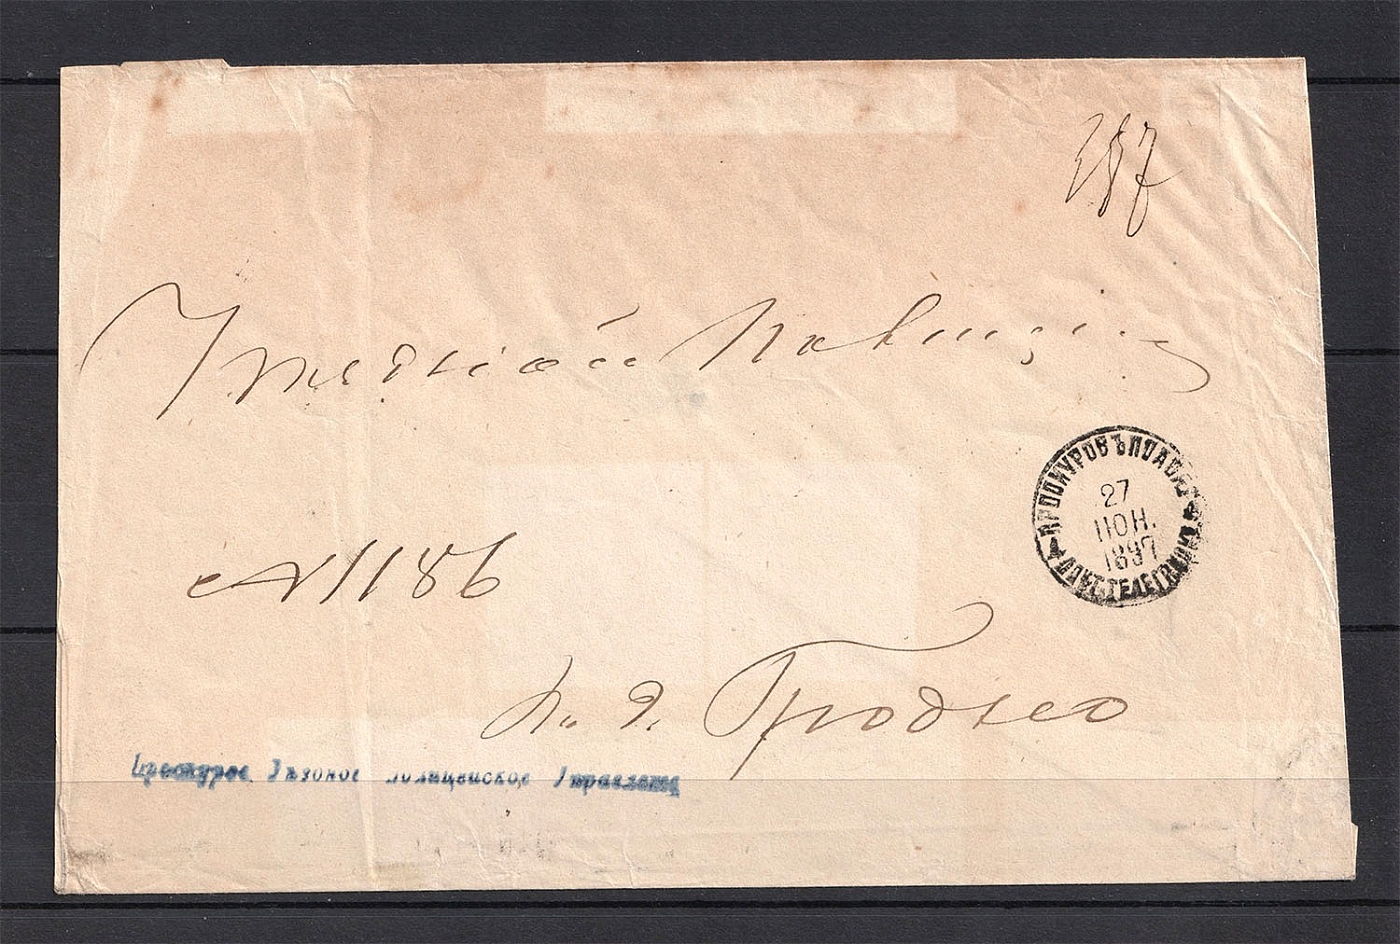 257
Уездной Полиции
№ 1186
въ г. Гродно
ПРОСКУРОВЪ ПОДОЛ.
27
ІЮН.
1897
ПОЧТ. ТЕЛЕГР.
Проскуров. Уѣздное Полицейское Управленіе